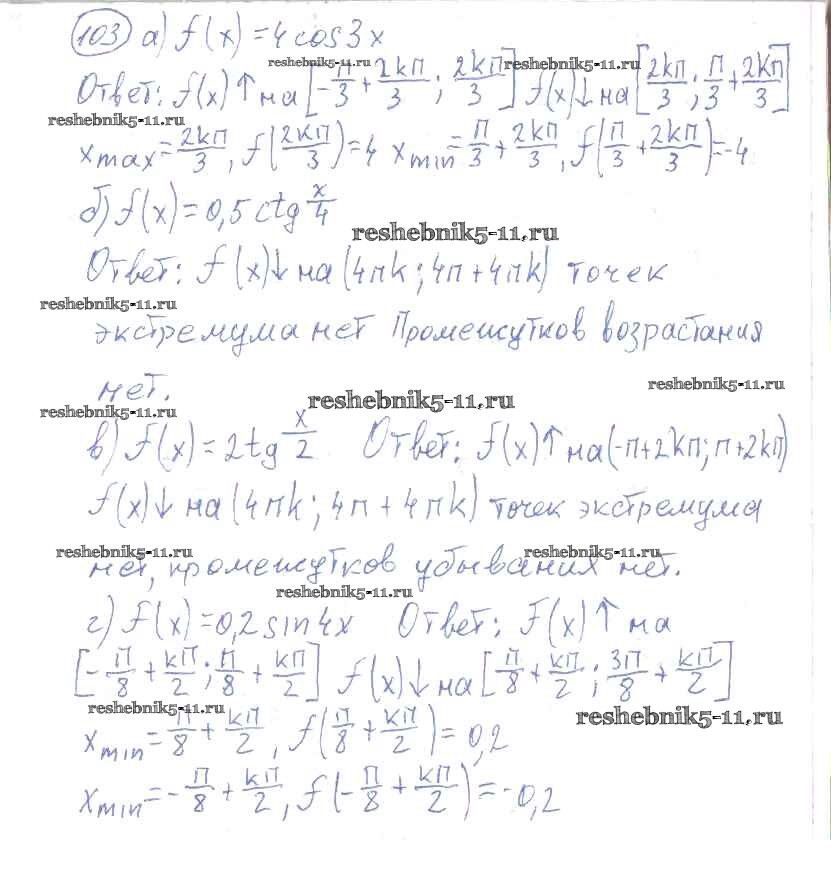 103 а) f(x)=4cos3x
reshebnik5-11.ru reshebnik5-11.ru
Ответ: f(x)↑ на [-π/3+2kπ/3; 2kπ/3] f(x)↓ на [2kπ/3; π/3+2kπ/3]
reshebnik5-11.ru
xmax=2kπ/3, f(2kπ/3)=4 xmin=π/3+2kπ/3, f(π/3+2kπ/3)=-4
б) f(x)=0,5ctg x/4
reshebnik5-11.ru
Ответ: f(x)↓ на (4πk; 4π+4πk) точек
reshebnik5-11.ru
экстремума нет Промежутков возрастания
нет.
reshebnik5-11.ru
reshebnik5-11.ru
reshebnik5-11.ru
в) f(x)=2tg x/2 Ответ: f(x)↑ на (-π+2kπ; π+2kπ)
f(x)↓ на (4πk; 4π+4πk) точек экстремума
reshebnik5-11.ru reshebnik5-11.ru
нет, промежутков убывания нет.
reshebnik5-11.ru
г) f(x)=0,2sin4x Ответ: F(x)↑ на
[-π/8+kπ/2; π/8+kπ/2] f(x)↓ на [π/8+kπ/2; 3π/8+kπ/2]
reshebnik5-11.ru
reshebnik5-11.ru
xmin=π/8+kπ/2, f(π/8+kπ/2)=0,2
xmin=-π/8+kπ/2, f(-π/8+kπ/2)=-0,2